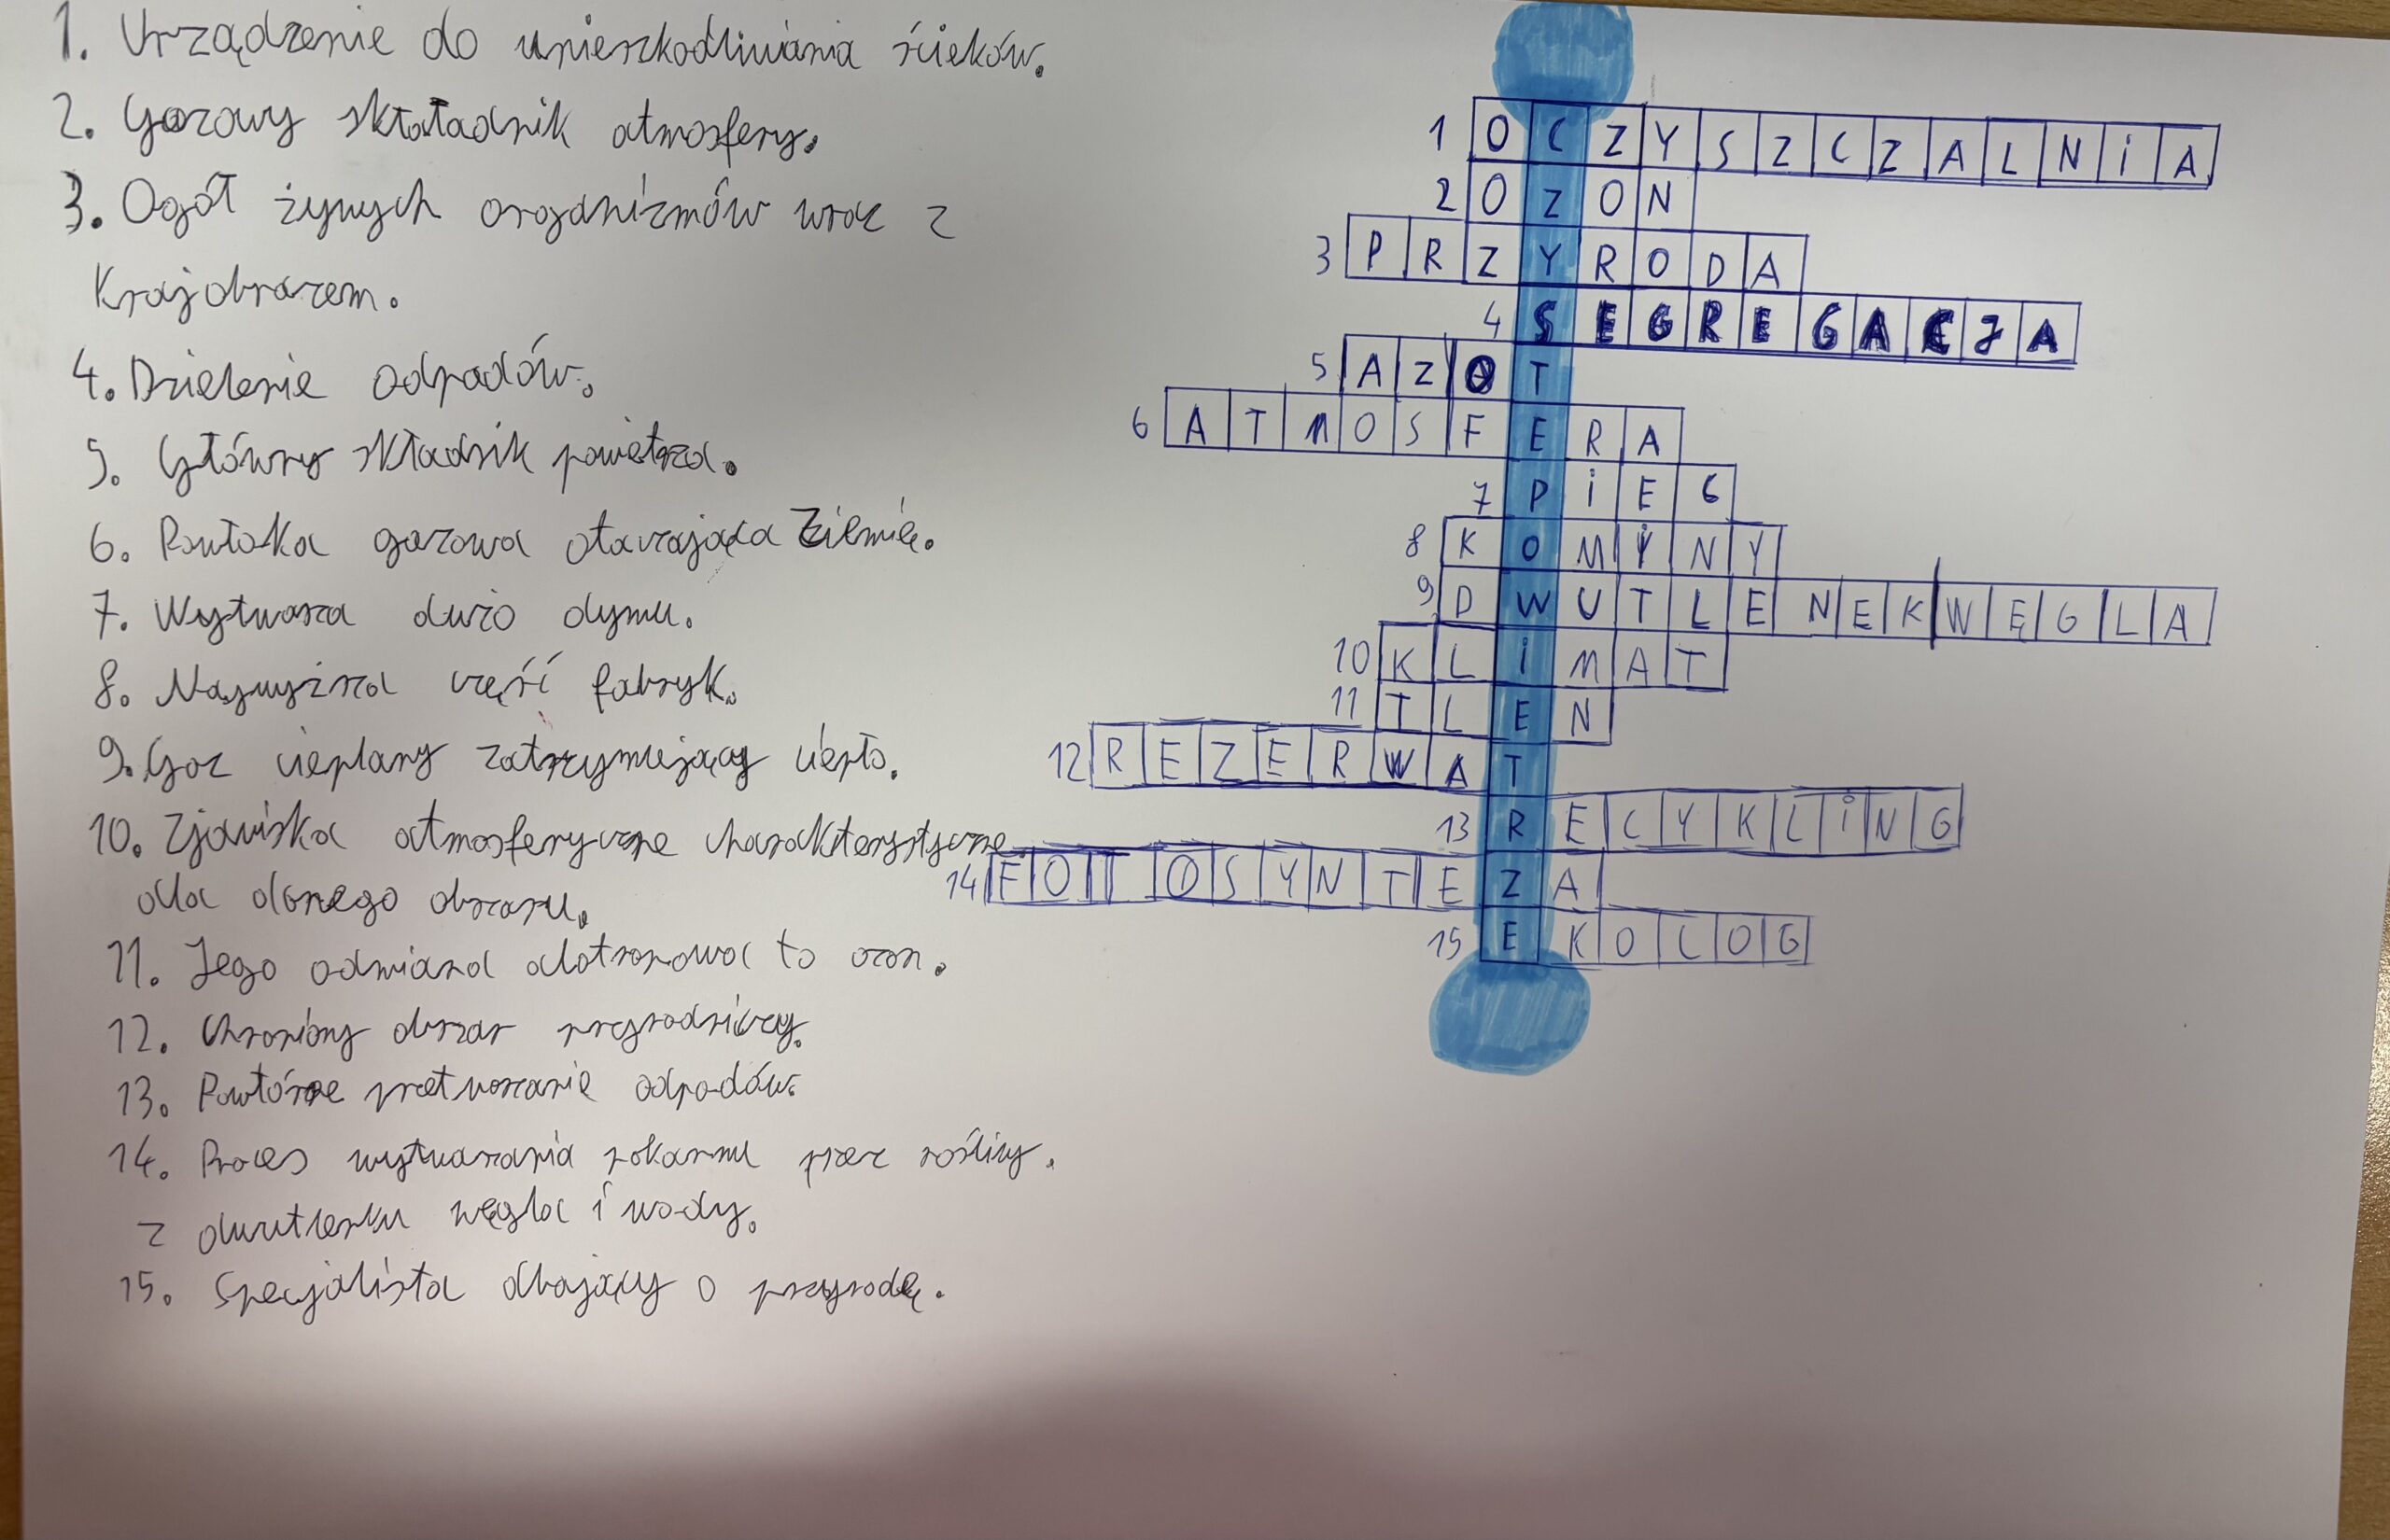 1. Urządzenie do unieszkodliwiania ścieków.
2. Gazowy składnik atmosfery.
3. Ogół żywych organizmów wraz z
Krajobrazem.
4. Dzielenie odpadów.
5. Główny składnik powietrza.
6. Powłoka gazowa otaczająca Ziemię.
7. Wytwarza dużo dymu.
8. Najwyższa część fabryk.
9. Gaz cieplany zatrzymujący ciepło.
10. Zjawiska atmosferyczne charakterystyczne
dla danego obszaru.
11. Jego odmiana alotropowa to ozon.
12. Chroniony obszar przyrodniczy.
13. Powtórne przetwarzanie odpadów.
14. Proces wytwarzania pokarmu przez rośliny.
z dwutlenku węgla i wody.
15. Specjalista dbający o przyrodę.
1 OCZYSZCZALNIA
2 OZON
3 PRZYRODA
4 SEGREGACJA
5 AZOT
6 ATMOSFERA
7 PIEC
8 KOMINY
9 DWUTLENEK WĘGLA
10 KLIMAT
11 TLEN
12 REZERWAT
13 RECYKLING
14 FOTOSYNTEZA
15 EKOLOG